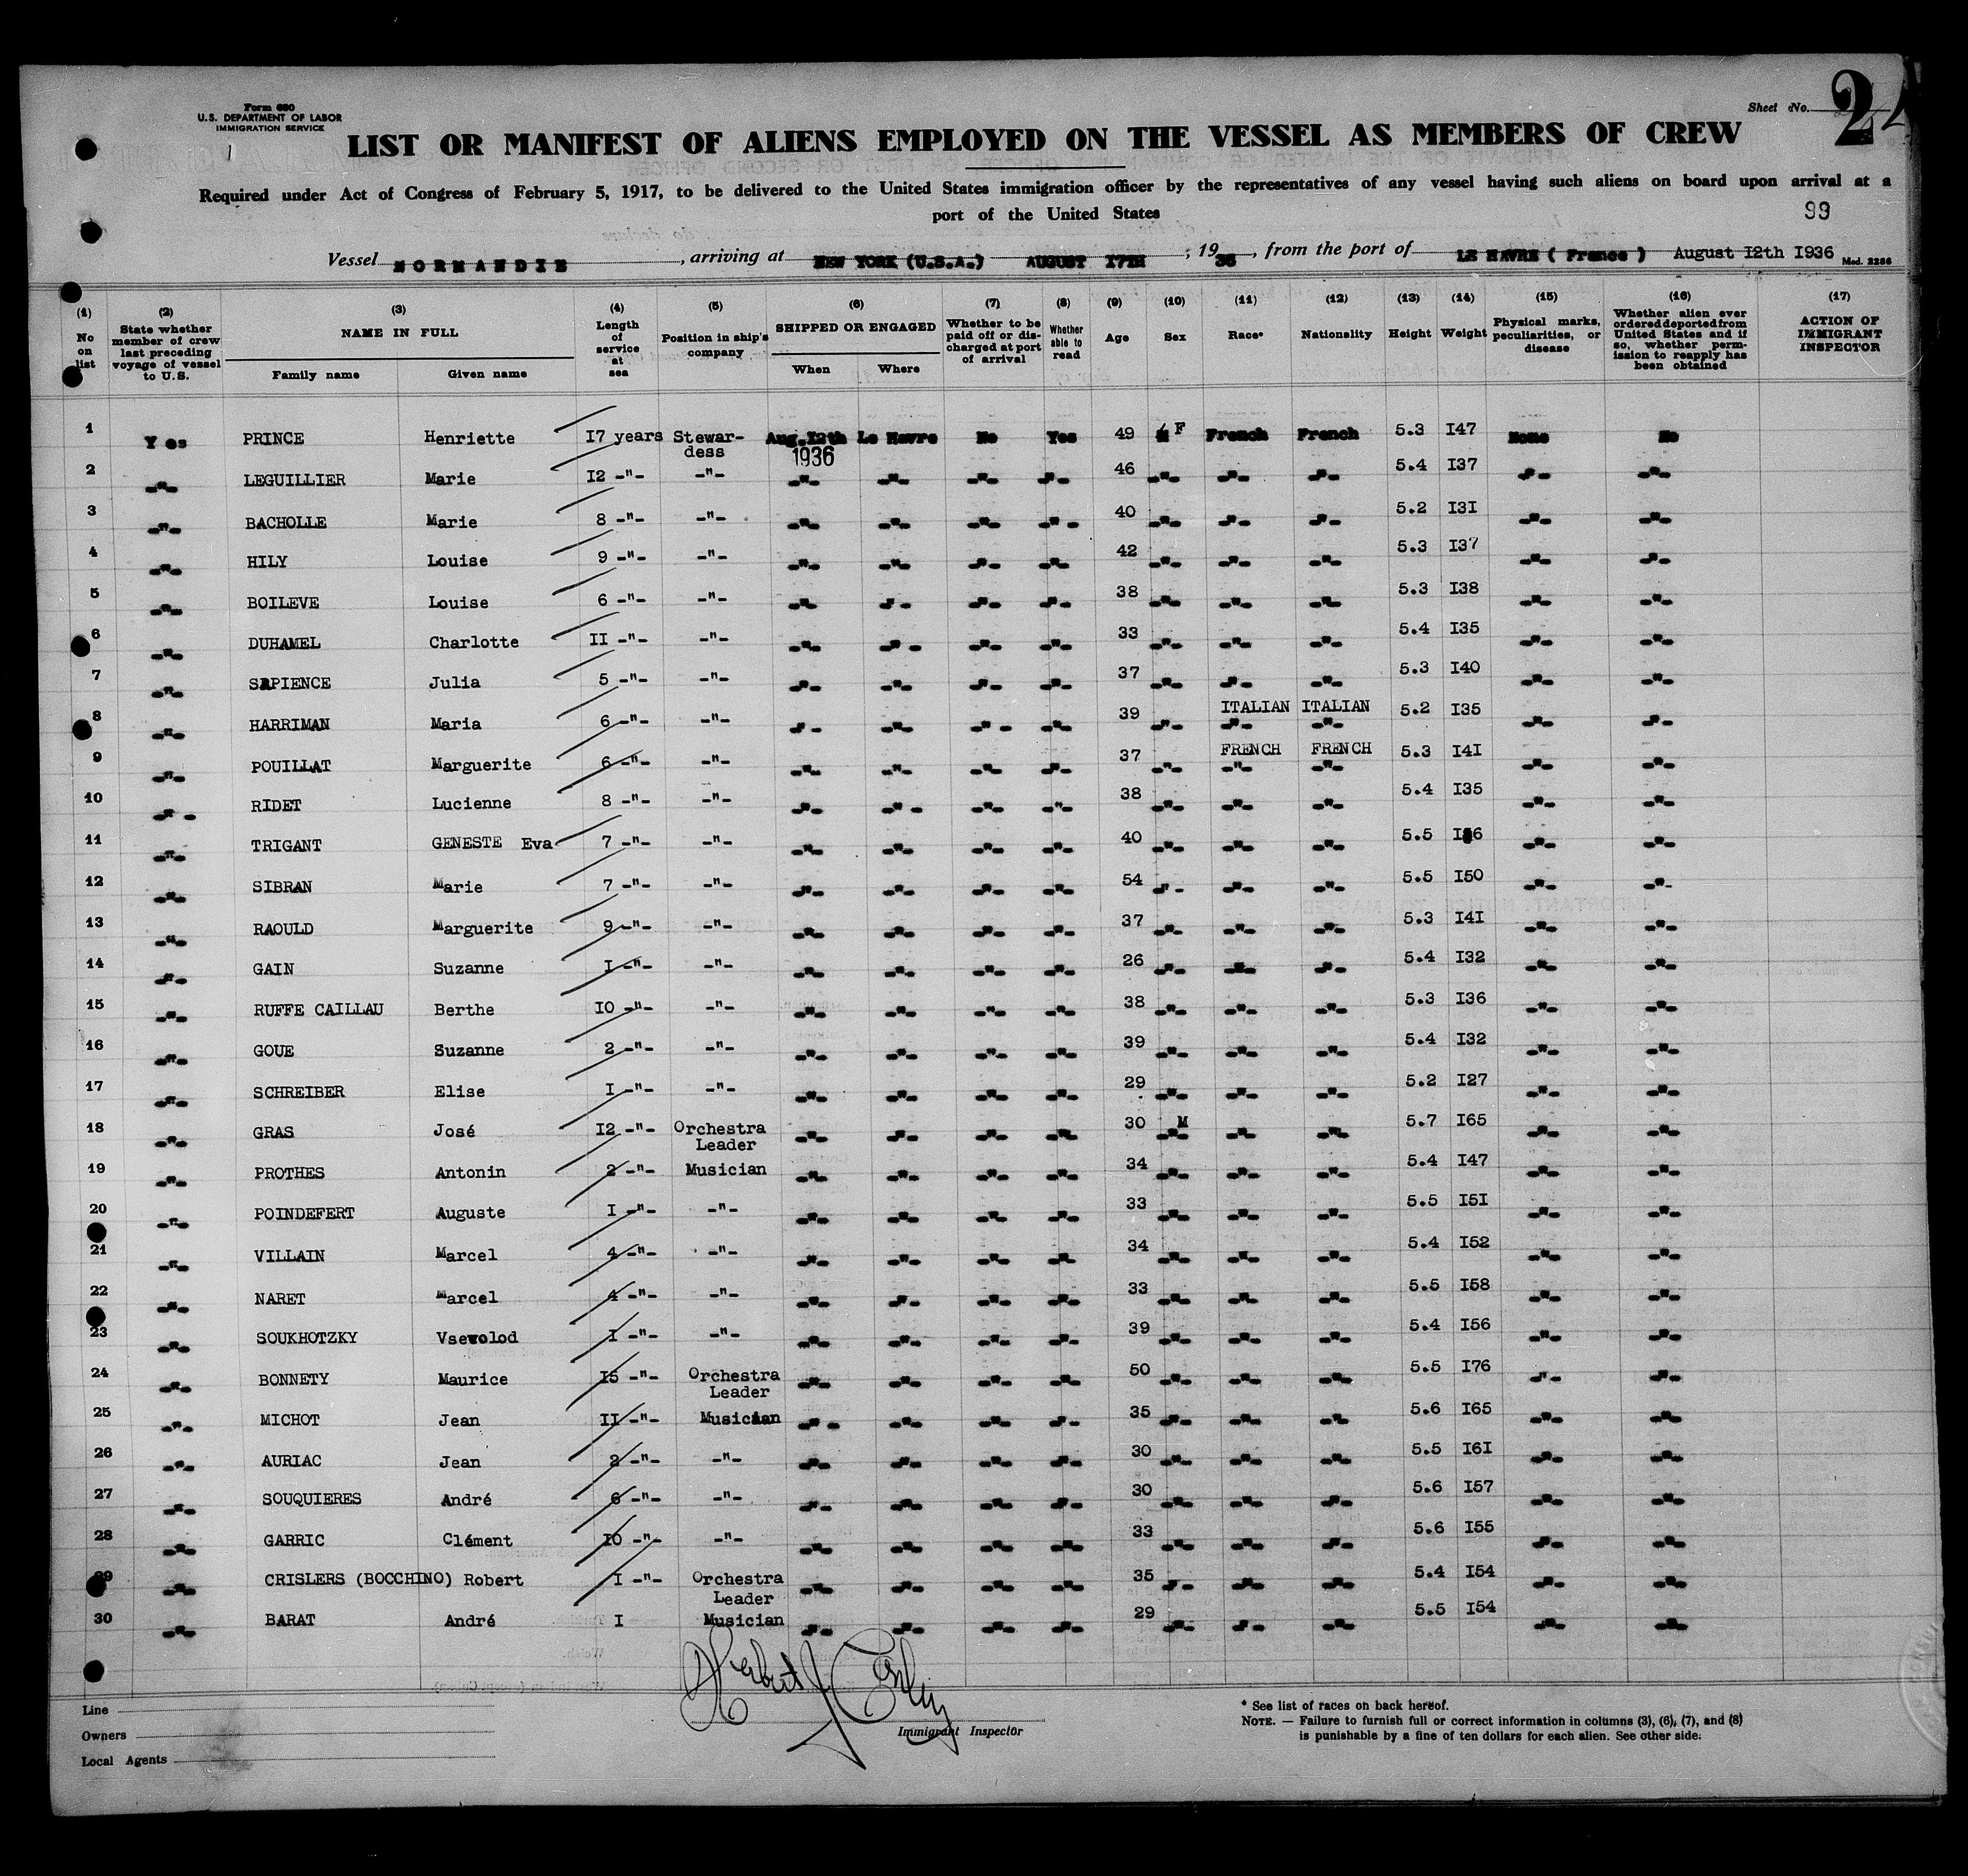 Form 680
U.S. DEPARTMENT OF LABOR
IMMIGRATION SERVICE
Sheet No. 2
LIST OR MANIFEST OF ALIENS EMPLOYED ON THE VESSEL AS MEMBERS OF CREW
Required under Act of Congress of February 5, 1917, to be delivered to the United States immigration officer by the representatives of any vessel having such aliens on board upon arrival at a
port of the United States
99
Vessel NORMANDIE, arriving at NEW YORK (U.S.A.) AUGUST 17TH ; 1936, from the port of LE HAVRE ( France ) August I2th I936 Mod. 2286
(1) No on list (2) State whether member of crew last preceding voyage of vessel to U.S. (3) NAME IN FULL Family name Given name (4) Length of service at sea (5) Position in ship's company (6) SHIPPED OR ENGAGED When Where (7) Whether to be paid off or discharged at port of arrival (8) Whether able to read (9) Age (10) Sex (11) Race* (12) Nationality (13) Height (14) Weight (15) Physical marks, peculiarities, or disease (16) Whether alien ever ordered deported from United States and if so, whether permission to reapply has been obtained (17) ACTION OF IMMIGRANT INSPECTOR
1 Yes PRINCE Henriette I7 years Stewardess Aug.I2th 1936 Le Havre No Yes 49 F French French 5.3 I47 None No
2 -"- LEGUILLIER Marie I2 -"- -"- -"- -"- -"- -"- 46 -"- -"- -"- 5.4 I37 -"- -"-
3 -"- BACHOLLE Marie 8 -"- -"- -"- -"- -"- -"- 40 -"- -"- -"- 5.2 I3I -"- -"-
4 -"- HILY Louise 9 -"- -"- -"- -"- -"- -"- 42 -"- -"- -"- 5.3 I37 -"- -"-
5 -"- BOILEVE Louise 6 -"- -"- -"- -"- -"- -"- 38 -"- -"- -"- 5.3 I38 -"- -"-
6 -"- DUHAMEL Charlotte II -"- -"- -"- -"- -"- -"- 33 -"- -"- -"- 5.4 I35 -"- -"-
7 -"- SAPIENCE Julia 5 -"- -"- -"- -"- -"- -"- 37 -"- -"- -"- 5.3 I40 -"- -"-
8 -"- HARRIMAN Maria 6 -"- -"- -"- -"- -"- -"- 39 -"- ITALIAN ITALIAN 5.2 I35 -"- -"-
9 -"- POUILLAT Marguerite 6 -"- -"- -"- -"- -"- -"- 37 -"- FRENCH FRENCH 5.3 I4I -"- -"-
10 -"- RIDET Lucienne 8 -"- -"- -"- -"- -"- -"- 38 -"- -"- -"- 5.4 I35 -"- -"-
11 -"- TRIGANT GENESTE Eva 7 -"- -"- -"- -"- -"- -"- 40 -"- -"- -"- 5.5 -"- -"-
12 -"- SIBRAN Marie 7 -"- -"- -"- -"- -"- -"- 54 -"- -"- -"- 5.5 I50 -"- -"-
13 -"- RAOULD Marguerite 9 -"- -"- -"- -"- -"- -"- 37 -"- -"- -"- 5.3 I4I -"- -"-
14 -"- GAIN Suzanne I -"- -"- -"- -"- -"- -"- 26 -"- -"- -"- 5.4 I32 -"- -"-
15 -"- RUFFE CAILLAU Berthe IO -"- -"- -"- -"- -"- -"- 38 -"- -"- -"- 5.3 I36 -"- -"-
16 -"- GOUE Suzanne 2 -"- -"- -"- -"- -"- -"- 39 -"- -"- -"- 5.4 I32 -"- -"-
17 -"- SCHREIBER Elise I -"- -"- -"- -"- -"- -"- 29 -"- -"- -"- 5.2 I27 -"- -"-
18 -"- GRAS José I2 -"- Orchestra Leader -"- -"- -"- -"- 30 M -"- -"- 5.7 I65 -"- -"-
19 -"- PROTHES Antonin 2 -"- Musician -"- -"- -"- -"- 34 -"- -"- -"- 5.4 I47 -"- -"-
20 -"- POINDEFERT Auguste I -"- -"- -"- -"- -"- -"- 33 -"- -"- -"- 5.5 I5I -"- -"-
21 -"- VILLAIN Marcel 4 -"- -"- -"- -"- -"- -"- 34 -"- -"- -"- 5.4 I52 -"- -"-
22 -"- NARET Marcel 4 -"- -"- -"- -"- -"- -"- 33 -"- -"- -"- 5.5 I58 -"- -"-
23 -"- SOUKHOTZKY Vsevolod I -"- -"- -"- -"- -"- -"- 39 -"- -"- -"- 5.4 I56 -"- -"-
24 -"- BONNETY Maurice I5 -"- Orchestra Leader -"- -"- -"- -"- 50 -"- -"- -"- 5.5 I76 -"- -"-
25 -"- MICHOT Jean II -"- Musician -"- -"- -"- -"- 35 -"- -"- -"- 5.6 I65 -"- -"-
26 -"- AURIAC Jean 2 -"- -"- -"- -"- -"- -"- 30 -"- -"- -"- 5.5 I6I -"- -"-
27 -"- SOUQUIERES André 6 -"- -"- -"- -"- -"- -"- 30 -"- -"- -"- 5.6 I57 -"- -"-
28 -"- GARRIC Clément IO -"- -"- -"- -"- -"- -"- 33 -"- -"- -"- 5.6 I55 -"- -"-
29 -"- CRISLERS (BOCCHINO) Robert I -"- Orchestra Leader -"- -"- -"- -"- 35 -"- -"- -"- 5.4 I54 -"- -"-
30 -"- BARAT André I Musician -"- -"- -"- -"- 29 -"- -"- -"- 5.5 I54 -"- -"-
Line
Owners
Local Agents
Immigrant Inspector
* See list of races on back hereof.
NOTE. — Failure to furnish full or correct information in columns (3), (6), (7), and (8)
is punishable by a fine of ten dollars for each alien. See other side.